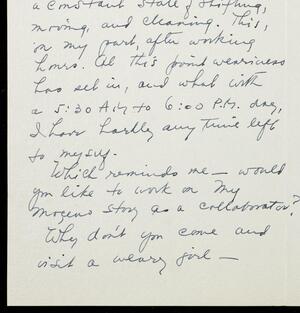 a constant state of shifting,
moving, and cleaning. This,
on my part, after working
hours. At this point weariness
has set in, and what with
a 5:30 A.M. to 6:00 P.M. day,
I have hardly any time left
to myself.
Which reminds me — would
you like to work on my
story as a collaborator?
Why don't you come and
visit a weary girl —